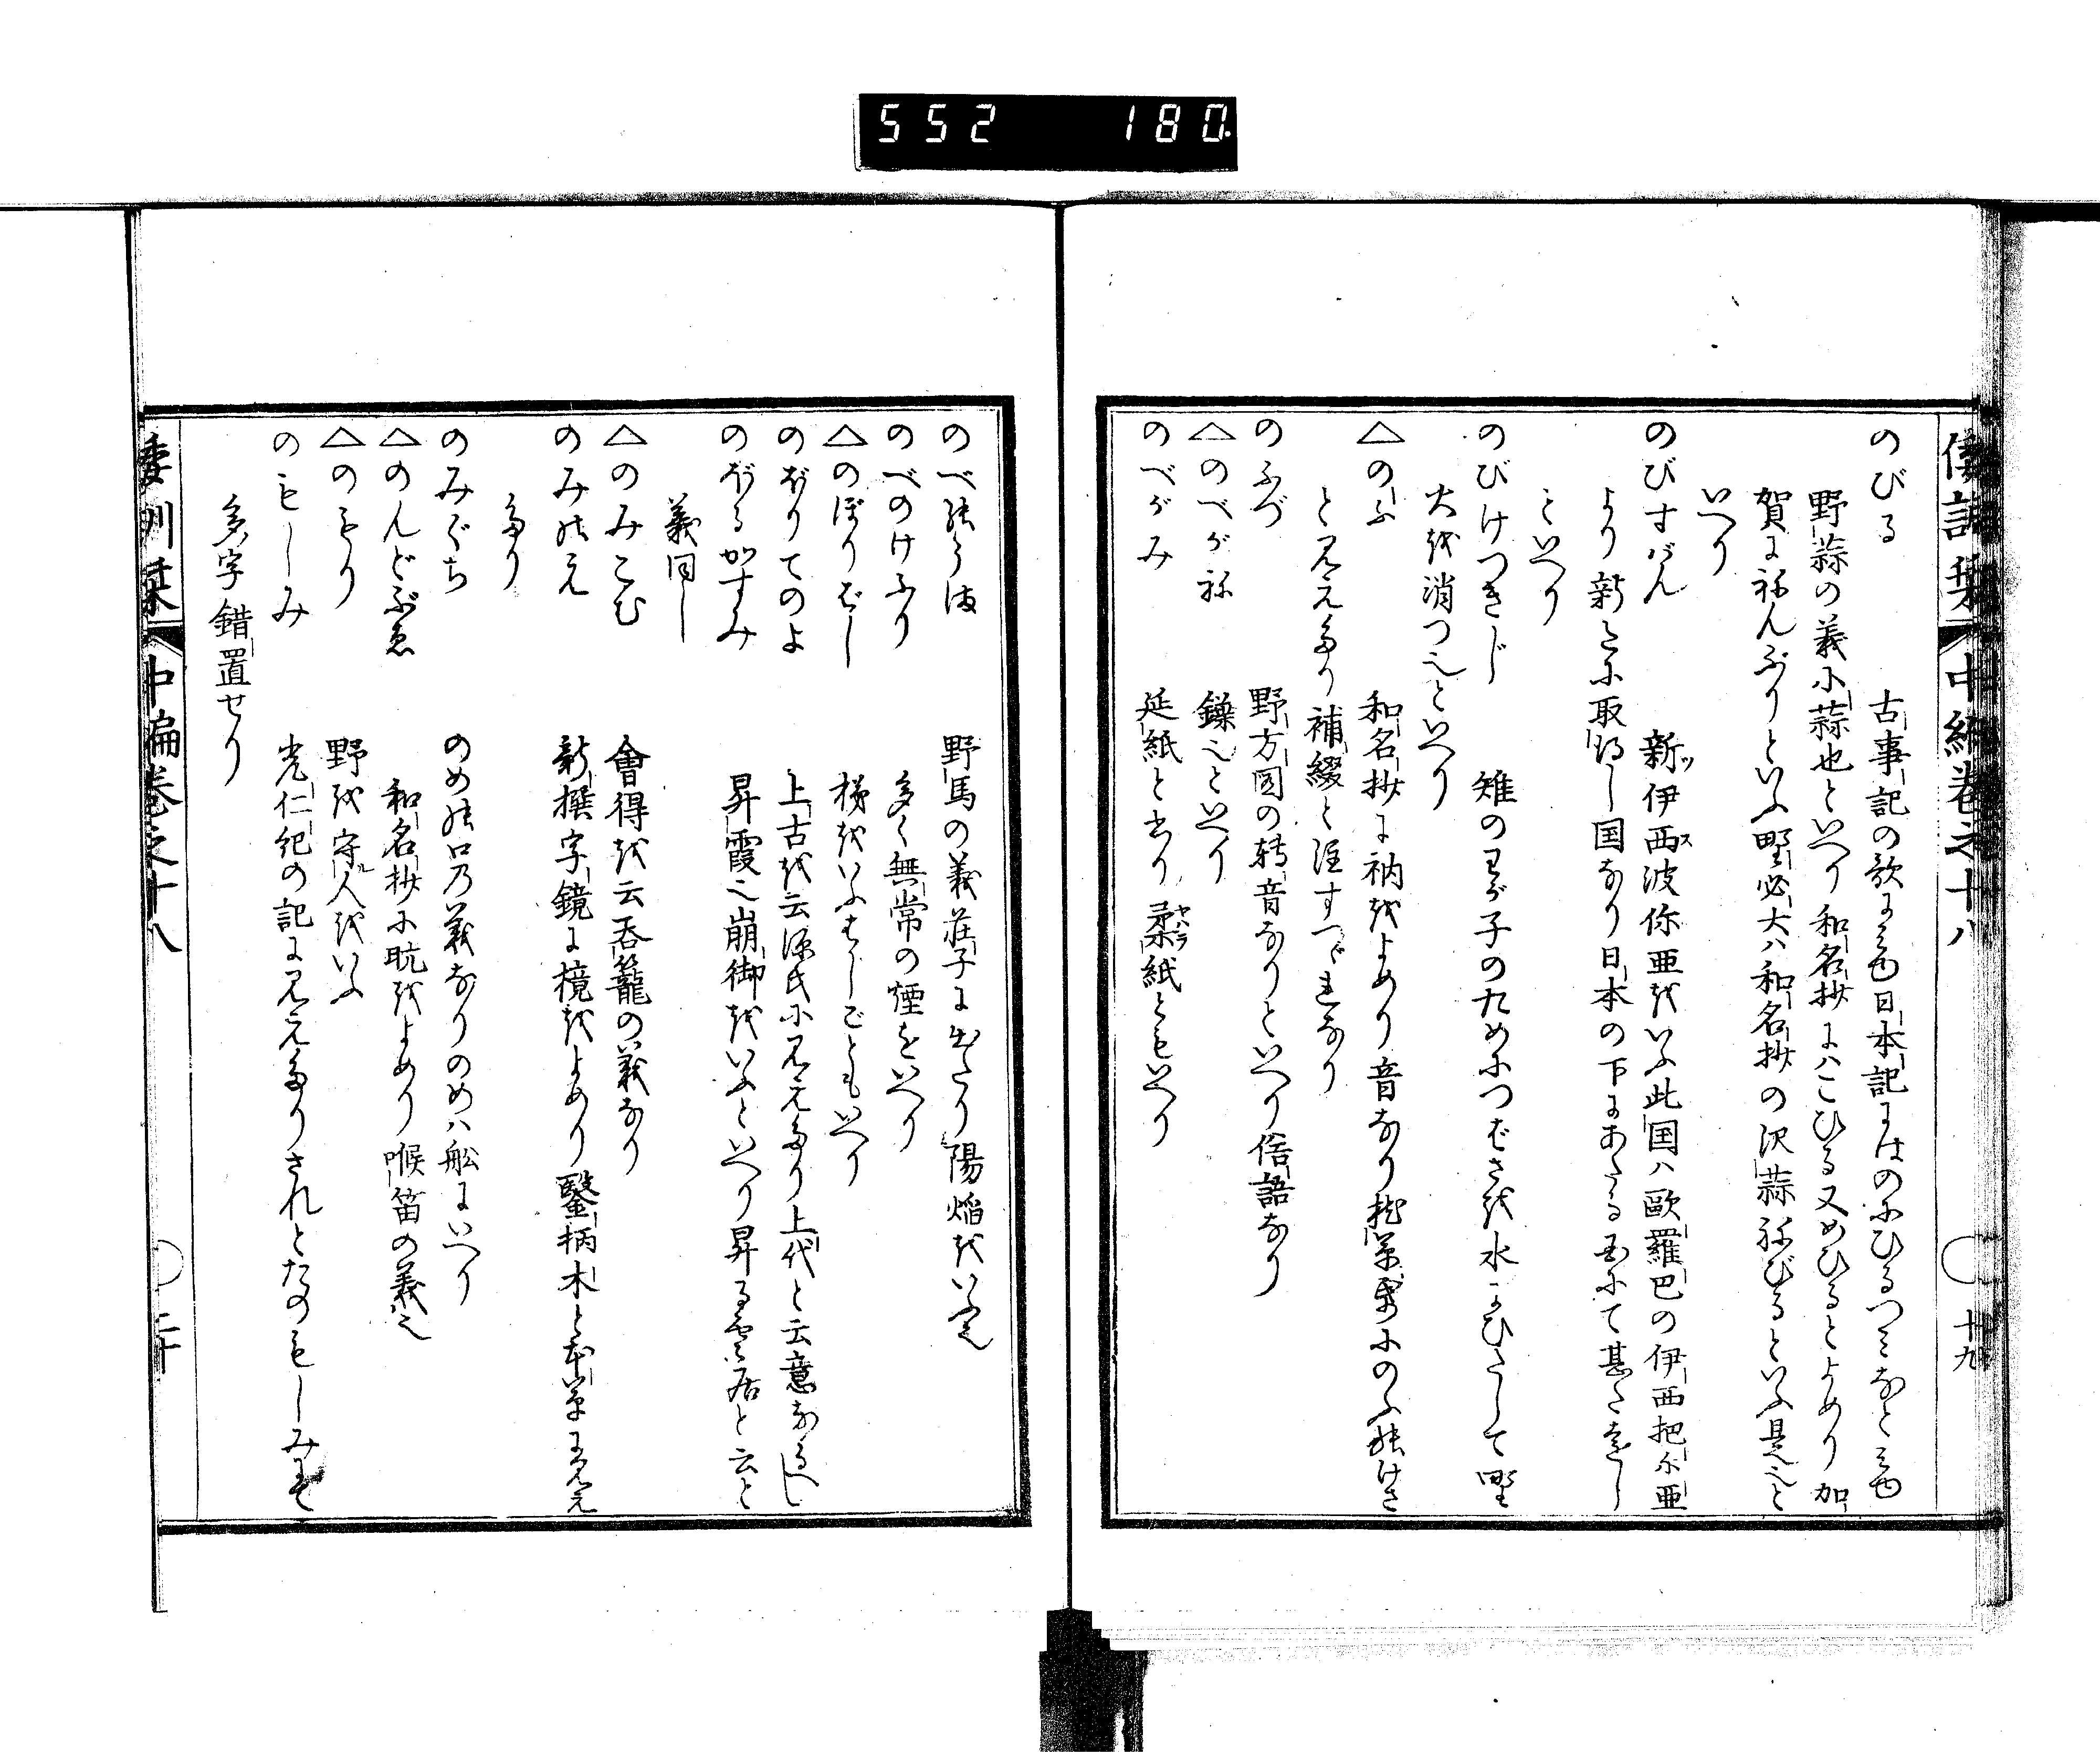 552 180
倭訓栞 中編巻之十八 十九
のびる 古事記の歌に見ゆ日本記にはのにひるつみなと見ゆ
野蒜の義小蒜也といへり和名抄にはこひる又めひるとよめり加
賀にねんぶりといふ野必大ハ和名抄の沢蒜ねびるといふ是也と
いへり
のびすばん 新伊西波你亜をいふ此国ハ歐羅巴の伊西把尓亜
より新たに取得し国なり日本の下にあたる国にて甚た遠し
といへり
のびけつきじ 雉のわが子のためにつばさを水にひたして野
火を消つ也といへり
△のふ 和名抄に衲をよめり音なり枕草帋にのふ能けさ
と見えたり補綴と注すつゞれなり
のふづ 野方図の転音なりといへり俗語なり
△のべがね 鏁也といへり
のべがみ 延紙と書り柔紙ともいへり
のべ能うま 野馬の義荘子に出たり陽焔をいふ也
のべのけふり 多く無常の煙をいへり
△のぼりばし 梯をいふはしごともいへり
のぼりてのよ 上古を云源氏に見えたり上代と云意なるへし
のぼるかすみ 昇霞也崩御をいふといへり昇る雲居と云と
義同し
△のみこむ 會得を云呑籠の義なり
のみ能え 新撰字鏡に檍をよめり鑿柄木と本草に見え
たり
のみぐち のめ能口乃義なりのめハ舩にいへり
△のんどぶゑ 和名抄に吭をよめり喉笛の義也
△のもり 野を守人をいふ
のもしみ 光仁紀の記に見えたりされとたのもしみにて
多字錯置せり
倭訓栞 中編巻之十八 二十